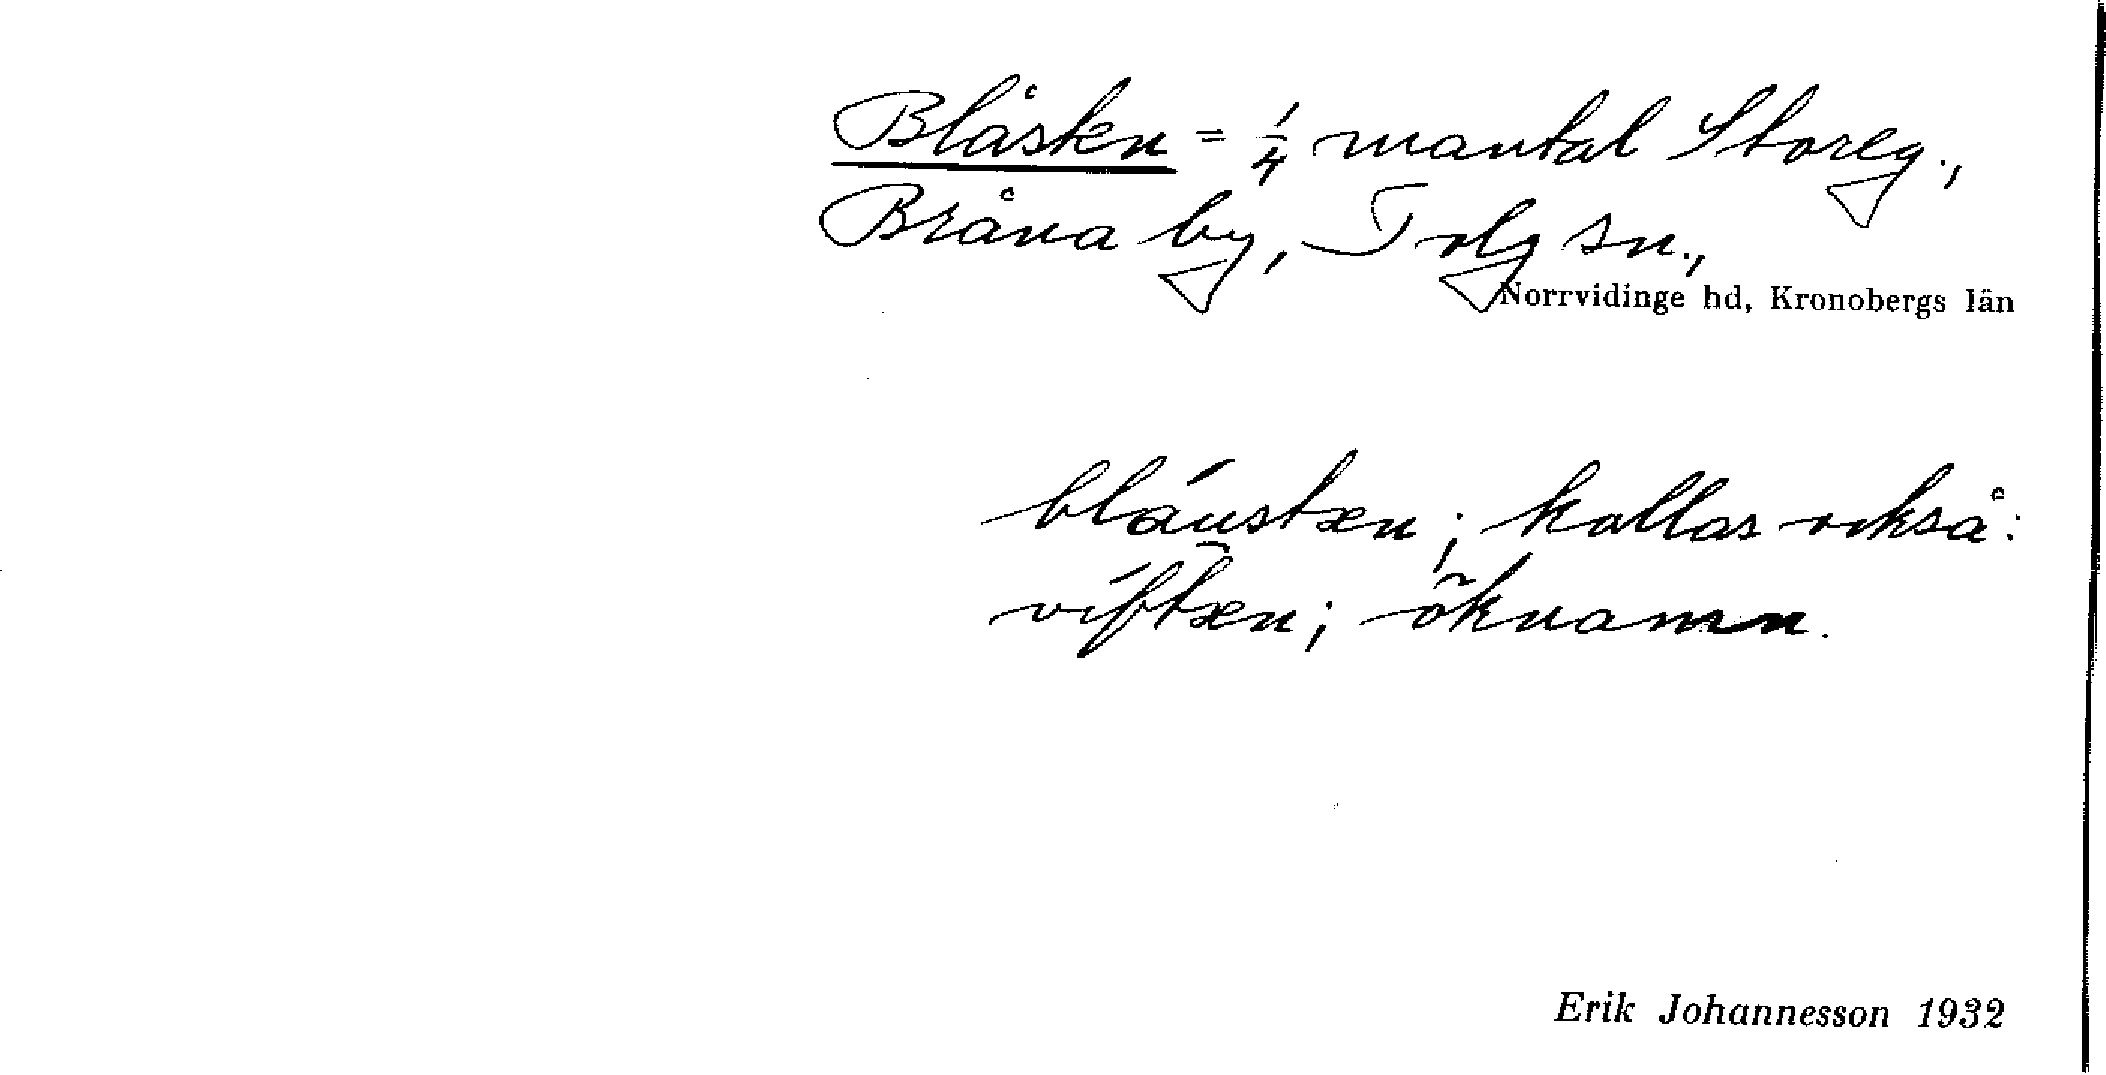 Blåsten = 1/4 mantal Storeg.,
Bråna by, Tolg sn.,
Norrvidinge hd, Kronobergs län
bláustæn; kallas också:
víftæn; öknamn.
Erik Johannesson 1932